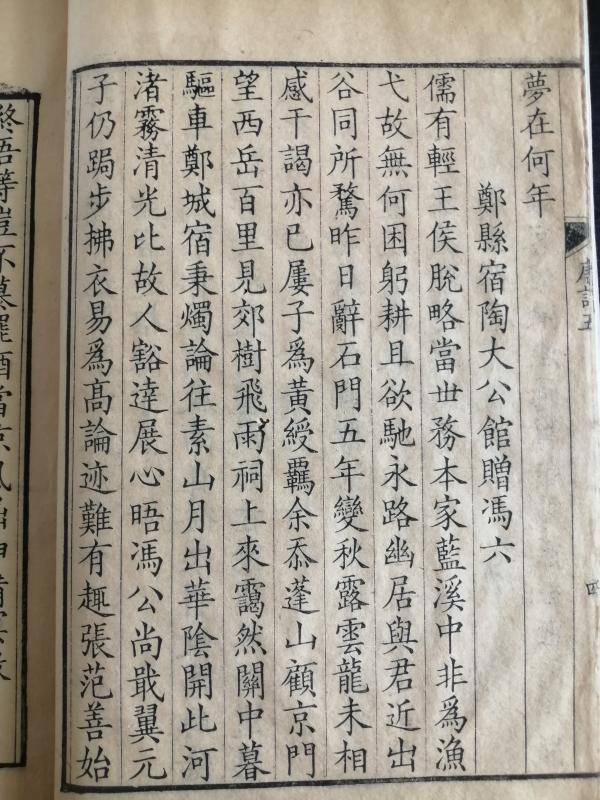 夢在何年
鄭縣宿陶大公館贈馮六
儒有輕王侯脫略當世務本家藍溪中非爲漁
弋故無何困躬耕且欲馳永路幽居與君近出
谷同所騖昨日辭石門五年變秋露雲龍未相
感干謁亦已屢子爲黃綬羈余忝蓬山顧京門
望西岳百里見郊樹飛雨祠上來靄然關中暮
驅車鄭城宿秉燭論往素山月出華陰開此河
渚霧清光比故人豁達展心晤馮公尚戢翼元
子仍跼步拂衣易爲高論迹難有趣張范善始
終吾等豈不慕罷酒當涼風屈伸備冥數